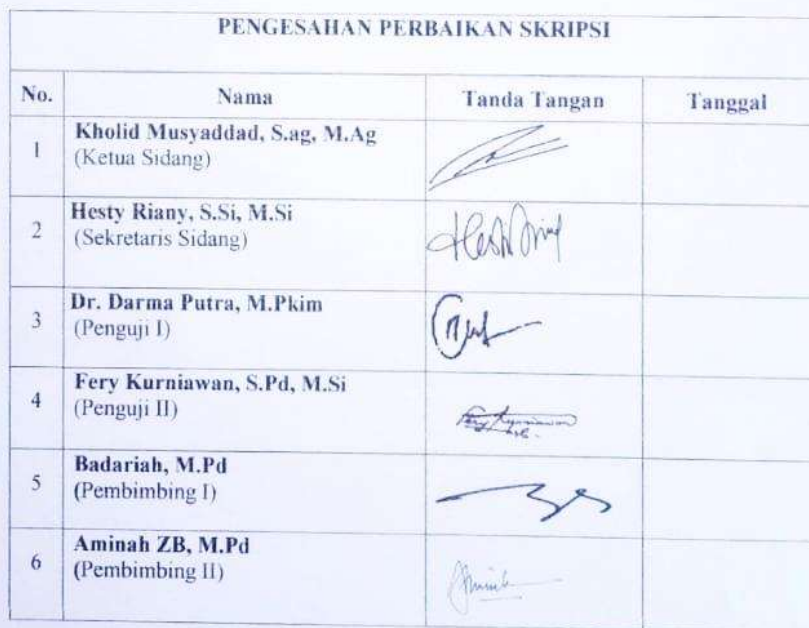 PENGESAHAN PERBAIKAN SKRIPSI
No. Nama Tanda Tangan Tanggal
1 Kholid Musyaddad, S.ag, M.Ag
(Ketua Sidang)
2 Hesty Riany, S.Si, M.Si
(Sekretaris Sidang)
3 Dr. Darma Putra, M.Pkim
(Penguji I)
4 Fery Kurniawan, S.Pd, M.Si
(Penguji II)
5 Badariah, M.Pd
(Pembimbing I)
6 Aminah ZB, M.Pd
(Pembimbing II)